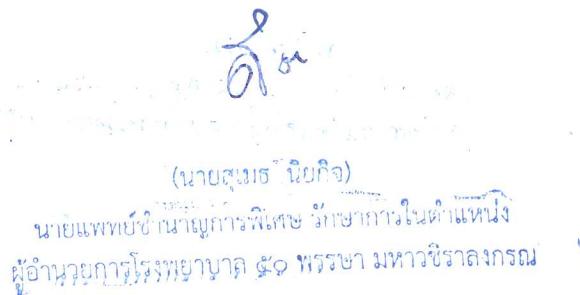 (นายสุเมธ นิยกิจ)
นายแพทย์ชำนาญการพิเศษ รักษาการในตำแหน่ง
ผู้อำนวยการโรงพยาบาล ๕๐ พรรษา มหาวชิราลงกรณ